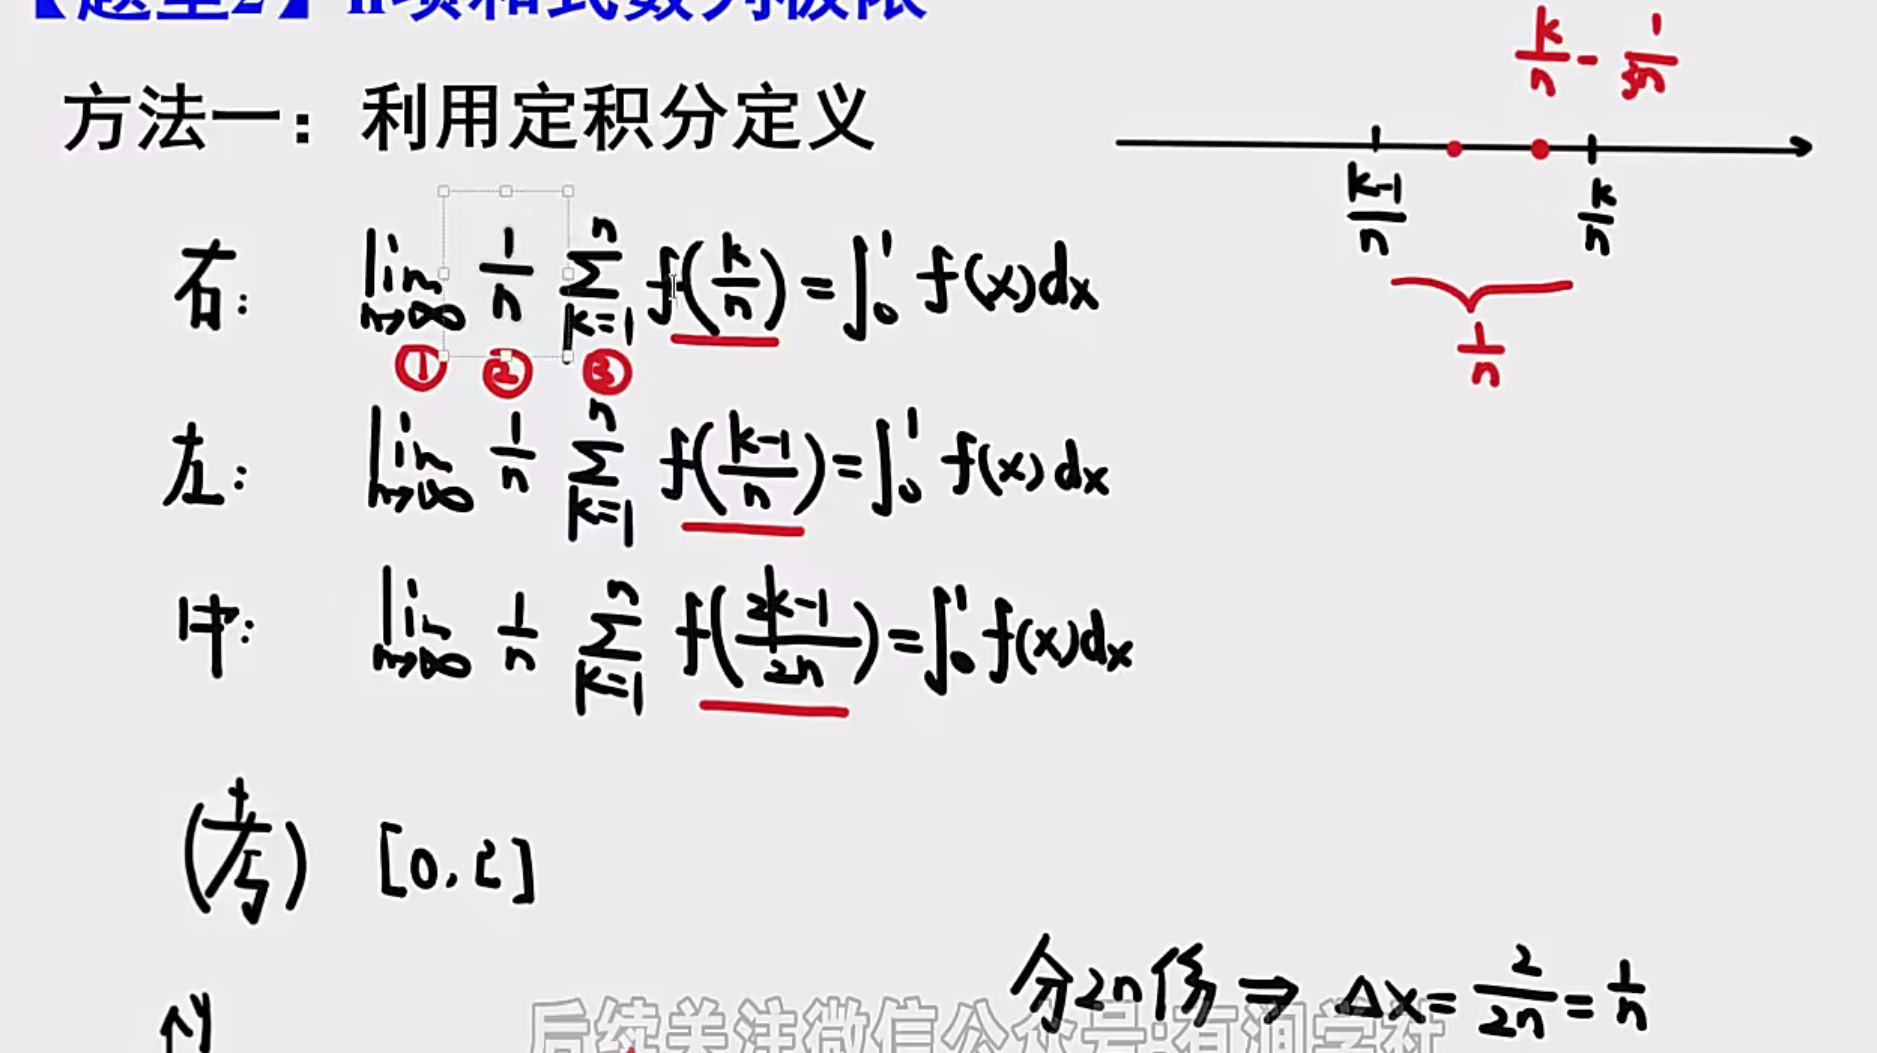 【题型2】n项和式数列极限
方法一：利用定积分定义
k/n - 1/2n
(k-1)/n k/n
1/n
右: lim n→∞ 1/n ∑ k=1 n f(k/n) = ∫₀¹ f(x)dx
① ② ③
左: lim n→∞ 1/n ∑ k=1 n f((k-1)/n) = ∫₀¹ f(x)dx
中: lim n→∞ 1/n ∑ k=1 n f((2k-1)/2n) = ∫₀¹ f(x)dx
(考) [0, 2]
分2n份 ⇒ Δx = 2/2n = 1/n
后续关注微信公众号:有洄学社